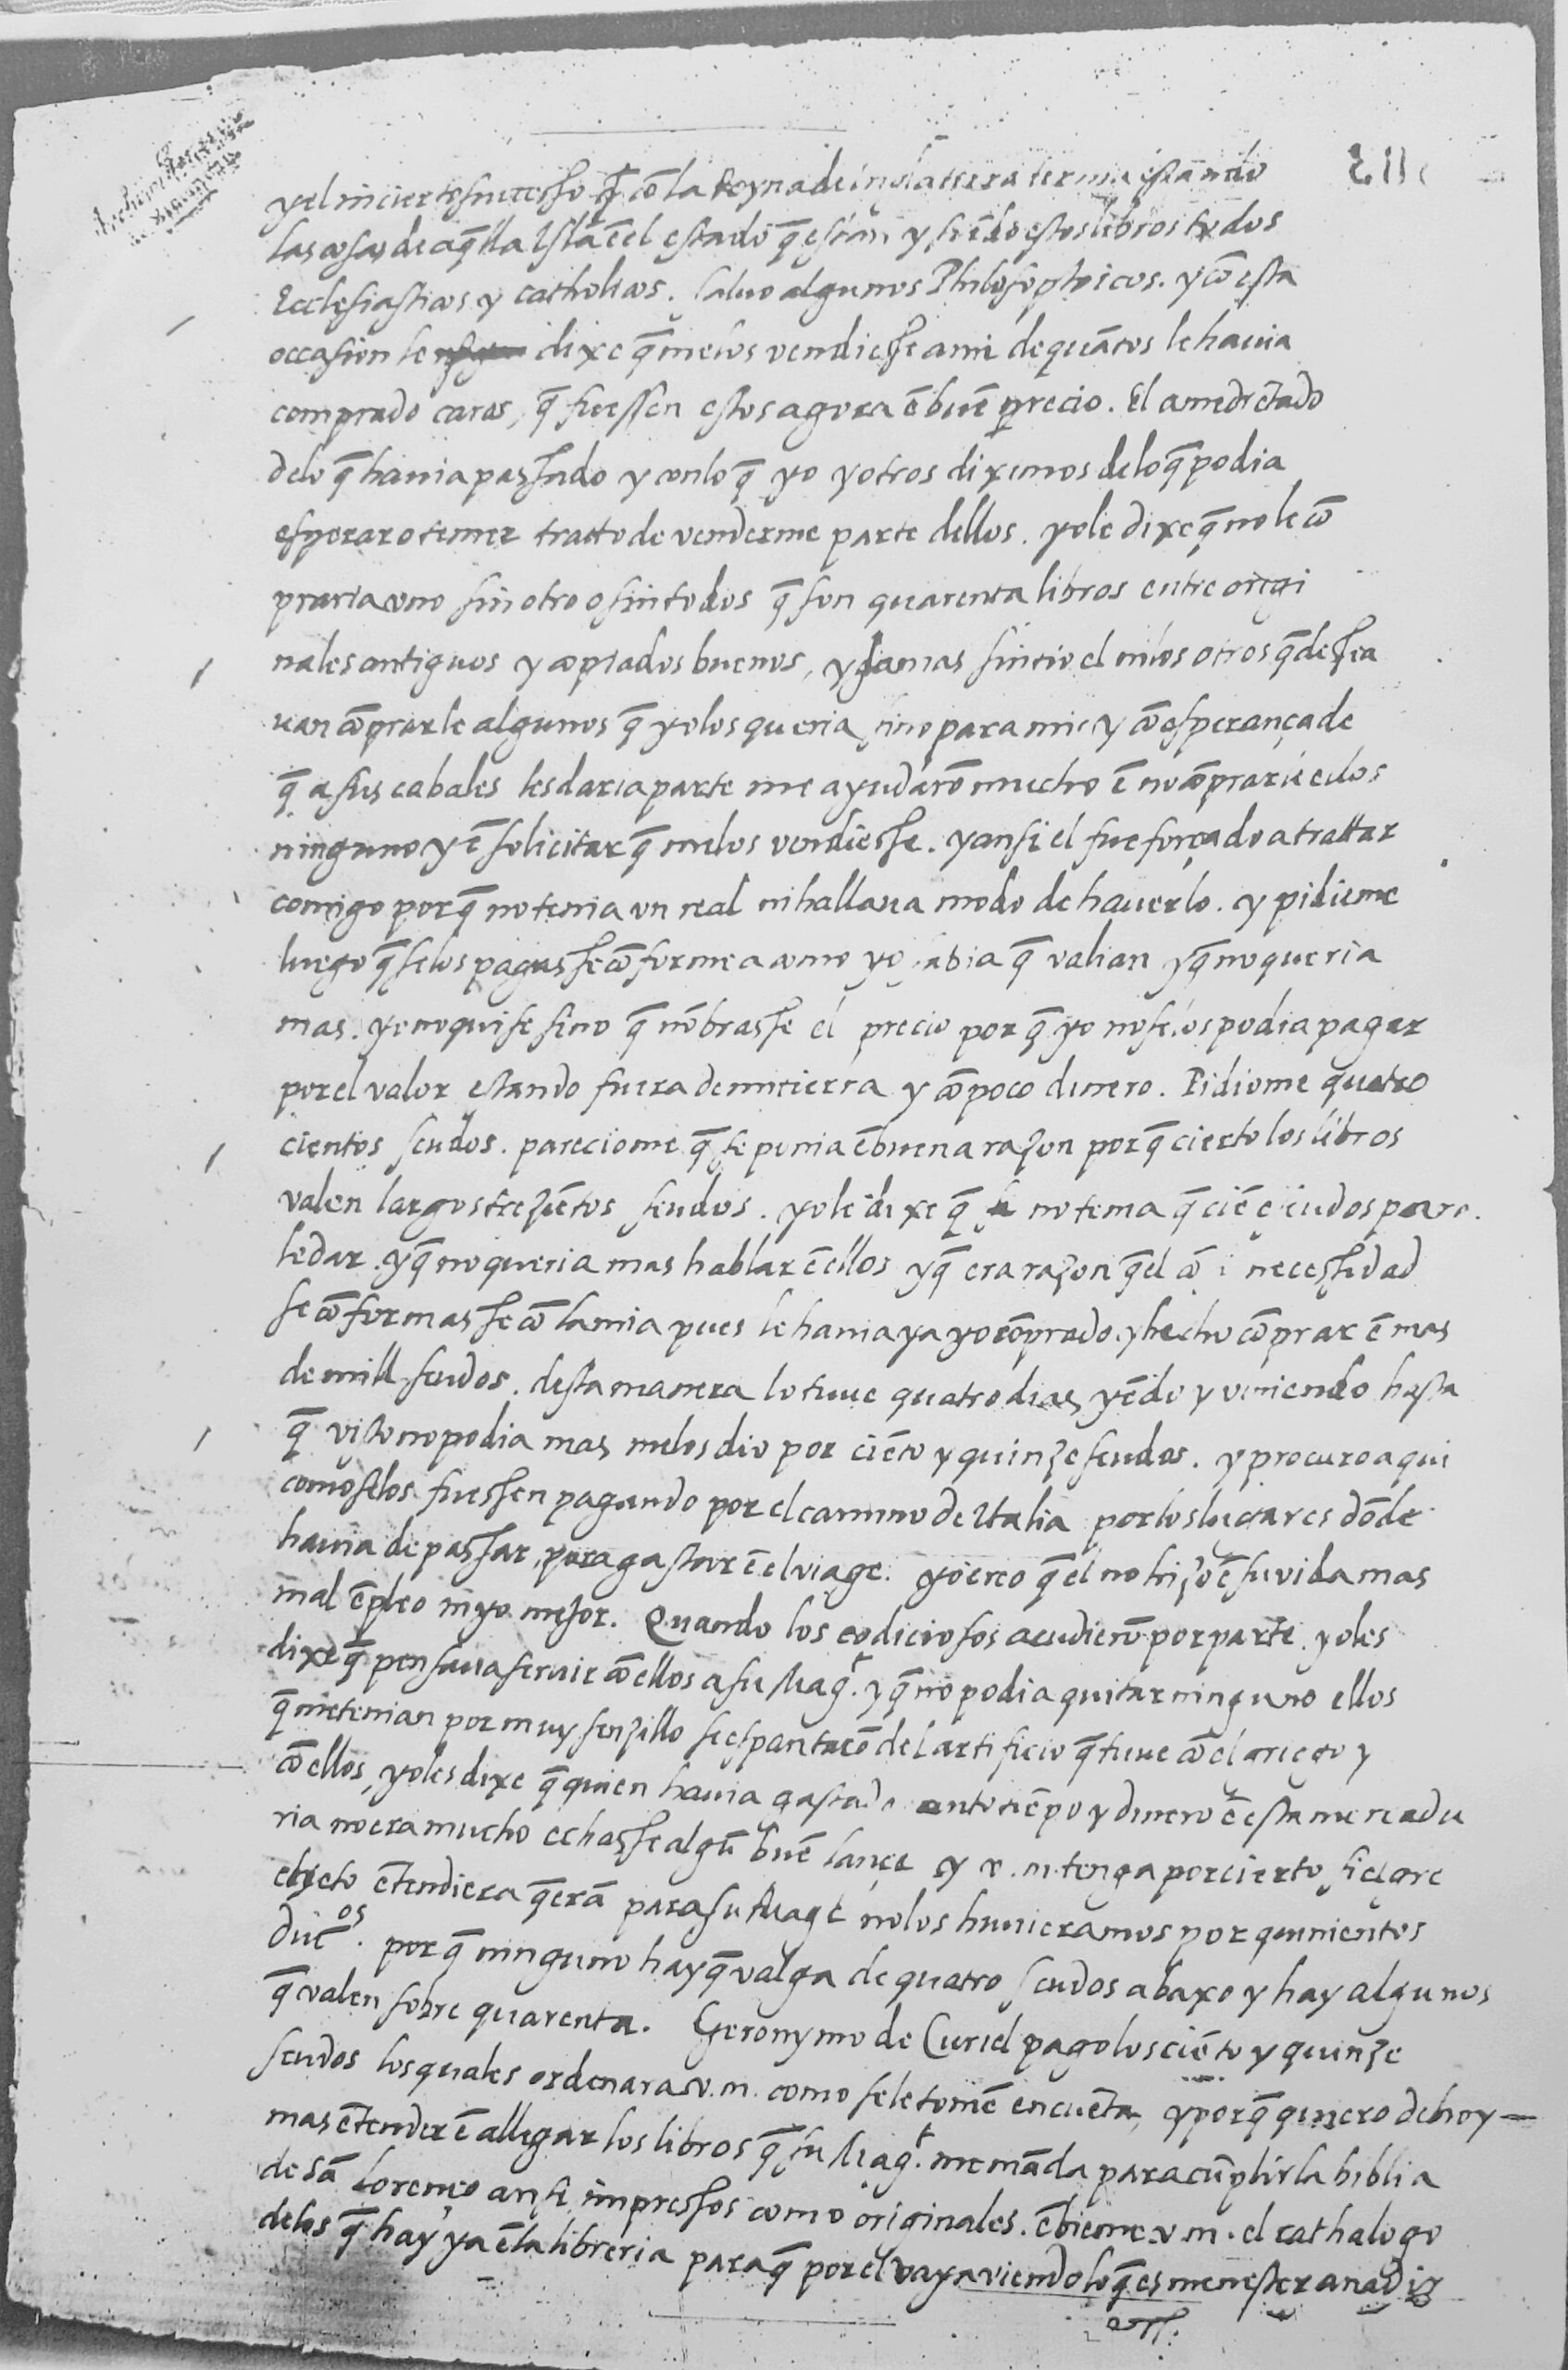 y el incierto successo q̄ cō la Reyna de inglatierra terniā estando
las cosas de aq̄lla Isla ē el estado q̄ están y siēdo estos libros todos
Ecclesiasticos y catholicos. salvo algunos Philosophicos. y cō esta
occasion le dixe q̄ me los vendiesse a mi de quātos le havia
comprado caros, q̄ fuessen estos agora ē buē precio. El amedrētado
de lo q̄ havia passado y con lo q̄ yo y otros diximos de lo q̄ podia
esperar o temer tratto de venderme parte dellos. yo le dixe q̄ no le cō
praria uno sin otro o sin todos q̄ son quarenta libros entre origi
nales antiguos y copiados buenos, y jamas sintio el ni los otros q̄ dessea
van cōprarle algunos q̄ yo los queria sino para mi y cō esperança de
q̄ a sus cabales les daria parte me ayudarō mucho ē no cōprar de ellos
ninguno y ē solicitar q̄ me los vendiesse. y ansi el fue forçado a trattar
comigo porq̄ no tenia un real ni hallava modo de haverlo. y pidiome
luego q̄ se los pagasse cōforme a como yo sabia q̄ valian y q̄ no queria
mas. yo no quise sino q̄ nōbrasse el precio por q̄ yo no se los podia pagar
por el valor estando fuera de mi tierra y cō poco dinero. Pidiome quatro
cientos scudos. pareciome q̄ se ponia ē buena razon por q̄ cierto los libros
valen largos trezиētos scudos. yo le dixe q̄ no tenia q̄ ciē escudos para
le dar. y q̄ no queria mas hablar ē ellos y q̄ era razon q̄ el cō necessidad
se cōformasse cō la mia pues le havia ya yo cōprado y hecho cōprar ē mas
de mill scudos. desta manera lo tuve quatro dias yēdo y viniendo hasta
q̄ visto no podia mas me los dio por ciēto y quinze scudos. y procuro aqui
como se los fuessen pagando por el camino de Italia por los lugares dōde
havia de passar para gastar ē el viage. yo creo q̄ el no hizo ē su vida mas
mal ēpleo ni yo mejor. Quando los codiciosos acudierō por parte. yo les
dixe q̄ pensava servir cō ellos a su Magᵗ. y q̄ no podia quitar ninguno ellos
q̄ me tenian por muy senzillo se espantarō del artificio q̄ tuve cō el griego y
cō ellos, yo les dixe q̄ quien havia gastado tanto tiēpo y dinero ē esta mercadu
ria no era mucho echasse algū buē lançe y v.m. tenga por cierto si el gre
chyeto ētendiera q̄ erā para su Magᵗ no los huvieramos por quinientos
duc^os. por q̄ ninguno hay q̄ valga de quatro scudos abaxo y hay algunos
q̄ valen sobre quarenta. Geronymo de Curiel pago los ciēto y quinze
scudos los quales ordenara v.m. como se le tomē en cuēta, y porq̄ quiero de hoy
mas ētender ē allegar los libros q̄ su Magᵗ. me māda para cūplir la biblia
de sā Lorenço ansi impressos como originales. ēbieme v.m. el cathalogo
de los q̄ hay ya ē la libreria para q̄ por el vaya viendo lo q̄ es menester anadir